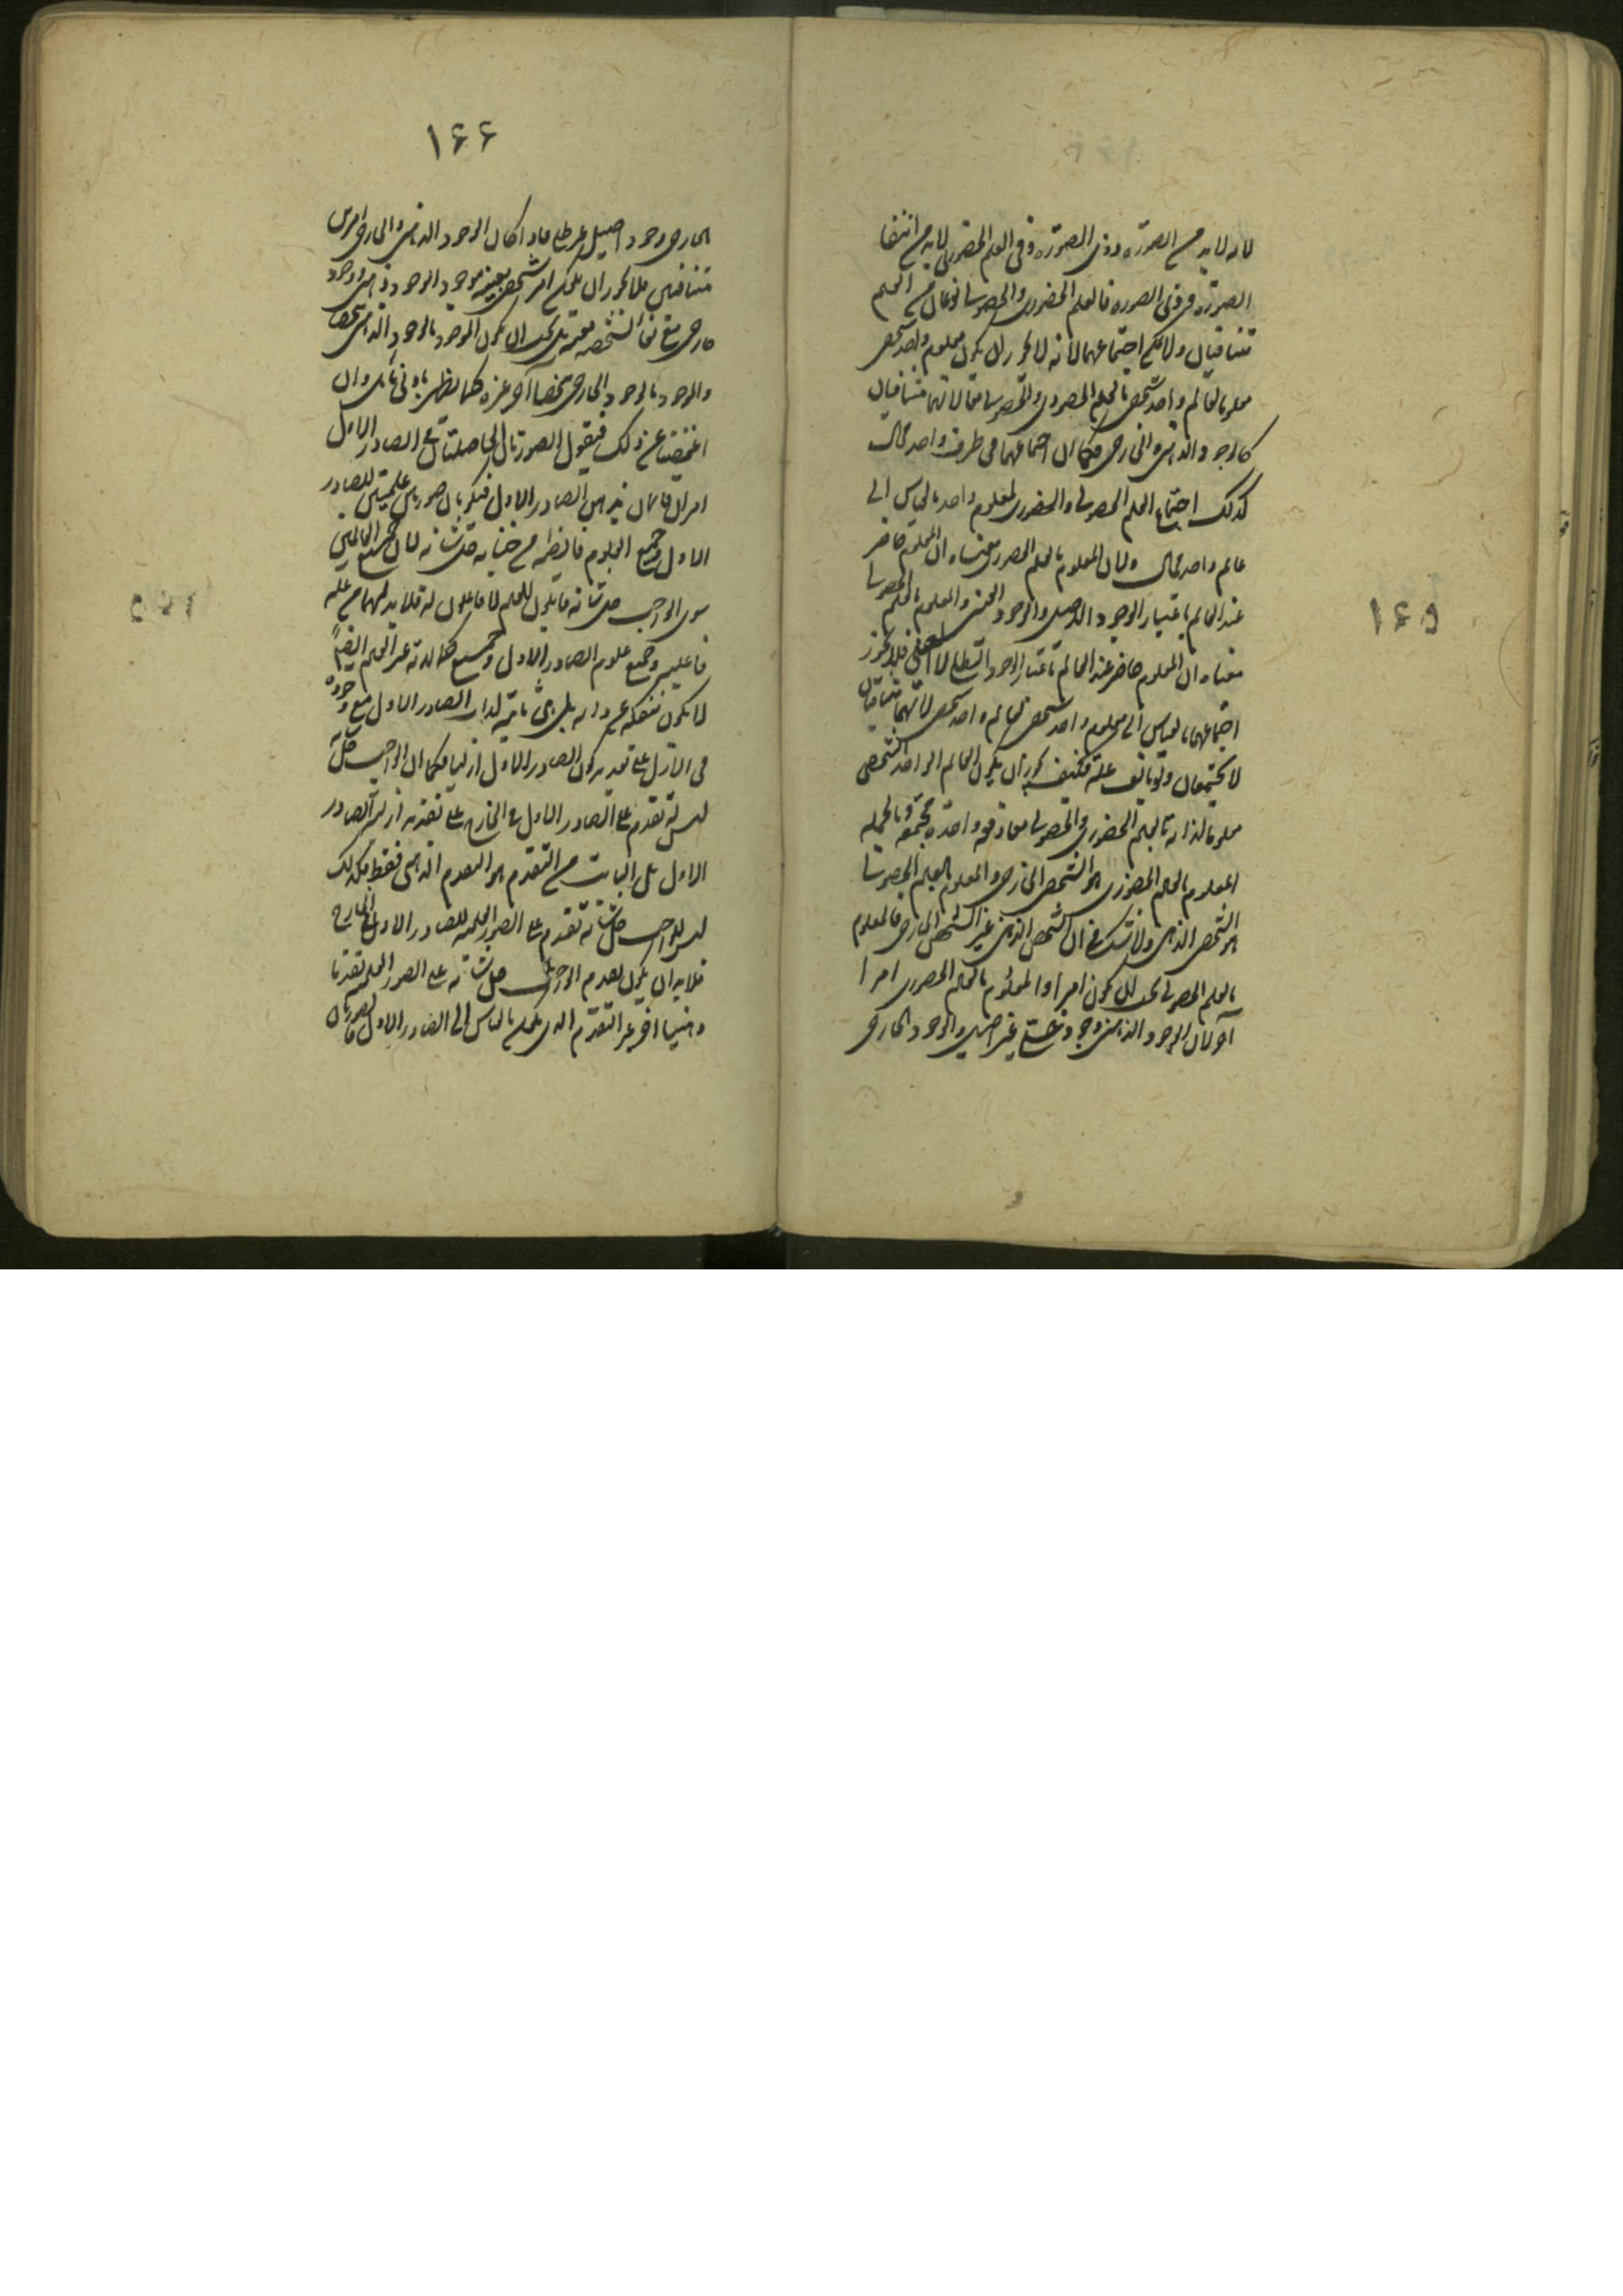 ١٦٥
لانه لابد من الصورة وذى الصورة وفى العلم الحضورى لابد من انتفا
الصورة وذى الصورة فالعلم الحضورى والحصولى نوعان من العلم
متنافيان ولا يمكن اجتماعهما لانه لا يجوز ان يكون معلوم واحد شخصى
معلوما لعالم واحد شخصى بالعلم الحضورى والحصولى معا لانهما متنافيان
كالوجود الذهنى والخارجى فكما ان اجتماعهما فى ظرف واحد محال
كذلك اجتماع العلم الحصولى والحضورى لمعلوم واحد بالقياس الى
عالم واحد محال ولان المعلوم بالعلم الحضورى معناه ان المعلوم حاضر
عند العالم باعتبار الوجود الاصيل والوجود العينى والمعلوم بالعلم الحصولى
معناه ان المعلوم حاضر عند العالم باعتبار الوجود الظلى لا العينى فلا يجوز
اجتماعهما بالقياس الى معلوم واحد شخصى لعالم واحد شخصى لانهما متنافيان
لا يجتمعان فكيف يجوز ان يكون العالم الواحد الشخصى
معلوما لذاته بالعلم الحضورى والحصولى معا دفعة واحدة مجتمعة وبالجملة
المعلوم بالعلم الحضورى هو الشخص الخارجى والمعلوم بالعلم الحصولى
هو الشخص الذهنى ولا شك فى ان الشخص الذهنى غير الشخص الخارجى فالمعلوم
بالعلم الحصولى يجب ان يكون امرا والمعلوم بالعلم الحضورى امرا
آخر لان الوجود الذهنى وجود ظلى غير اصيل والوجود الخارجى
١٦٦
الخارجى وجود اصيل غير ظلى فاذا كان الوجود الذهنى والخارجى امرين
متنافيين فلا يجوز ان يكون امر شخصى بعينه موجود الوجود ذهنى ووجود
خارجى مع بقاء تشخصه بعينه بل يجب ان يكون الموجود بالوجود الذهنى شخصا
والموجود بالوجود الخارجى شخصا آخر غيره كما يظهر بادنى تامل وان
اغمضنا عن ذلك فيقول الصورتان الحاصلتان فى الصادر الاول
امران قائمان بذهن الصادر الاول فيكونان صورتين علميتين للصادر
الاول وجميع العلوم فائضة من جنابه جل شانه لان جميع العالمين
سوى الواجب جل شانه قابلون للعلم لا فاعلون له فلابد لهما من علة
فاعلية وجميع علوم الصادر الاول وجميع كمالاته غير العلم ايضا
لا يكون منفكة عن ذاته بل هى ثابتة لذات الصادر الاول مع وجوده
فى الازل على تقدير كون الصادر الاول ازليا فكما ان الواجب جل شانه
ليس له تقدم على الصادر الاول فى الخارج على تقدير ازلية الصادر
الاول بل الثابت من التقدم هو التقدم الذهنى فقط فكذلك
ليس للواجب جل شانه تقدم على الصور العلمية للصادر الاول فى الخارج
فلابد ان يكون تقدم الواجب جل شانه على الصور العلمية تقدما
ذهنيا آخر غير التقدم الذى بالقياس الى الصادر الاول